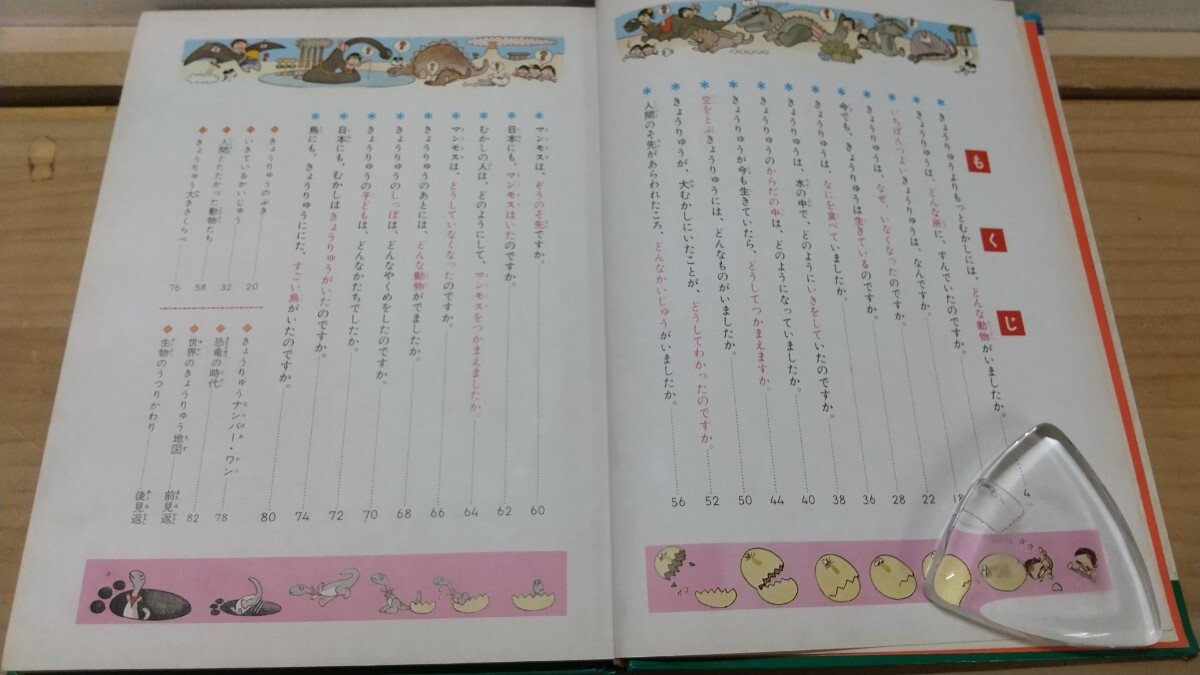 もくじ
きょうりゅうよりもっとむかしには、どんな動物がいましたか。 4
きょうりゅうは、どんな所に、すんでいたのですか。
いちばんつよいきょうりゅうは、なんですか。 18
きょうりゅうは、なぜ、いなくなったのですか。 22
今でも、きょうりゅうは生きているのですか。 28
きょうりゅうは、なにを食べていましたか。 36
きょうりゅうは、水の中で、どのようにいきをしていたのですか。 38
きょうりゅうのからだの中は、どのようになっていましたか。 40
きょうりゅうが今も生きていたら、どうしてつかまえますか。 44
空をとぶきょうりゅうには、どんなものがいましたか。 50
きょうりゅうが、大むかしにいたことが、どうしてわかったのですか。 52
人間のそ先があらわれたころ、どんなかいじゅうがいましたか。 56
マンモスは、ぞうのそ先ですか。 60
日本にも、マンモスはいたのですか。 62
むかしの人は、どのようにして、マンモスをつかまえましたか。 64
マンモスは、どうしていなくなったのですか。 66
きょうりゅうのあとには、どんな動物がでましたか。 68
きょうりゅうのしっぽは、どんなやくめをしたのですか。 70
きょうりゅうの子どもは、どんなかたちでしたか。 72
日本にも、むかしはきょうりゅうがいたのですか。 74
鳥にも、きょうりゅうににた、すごい鳥がいたのですか。 80
きょうりゅうのぶき 20
いきているかいじゅう 32
人間とたたかった動物たち 58
きょうりゅう大きさくらべ 76
きょうりゅうナンバー・ワン 78
恐竜の時代 82
世界のきょうりゅう地図 前見返
生物のうつりかわり 後見返